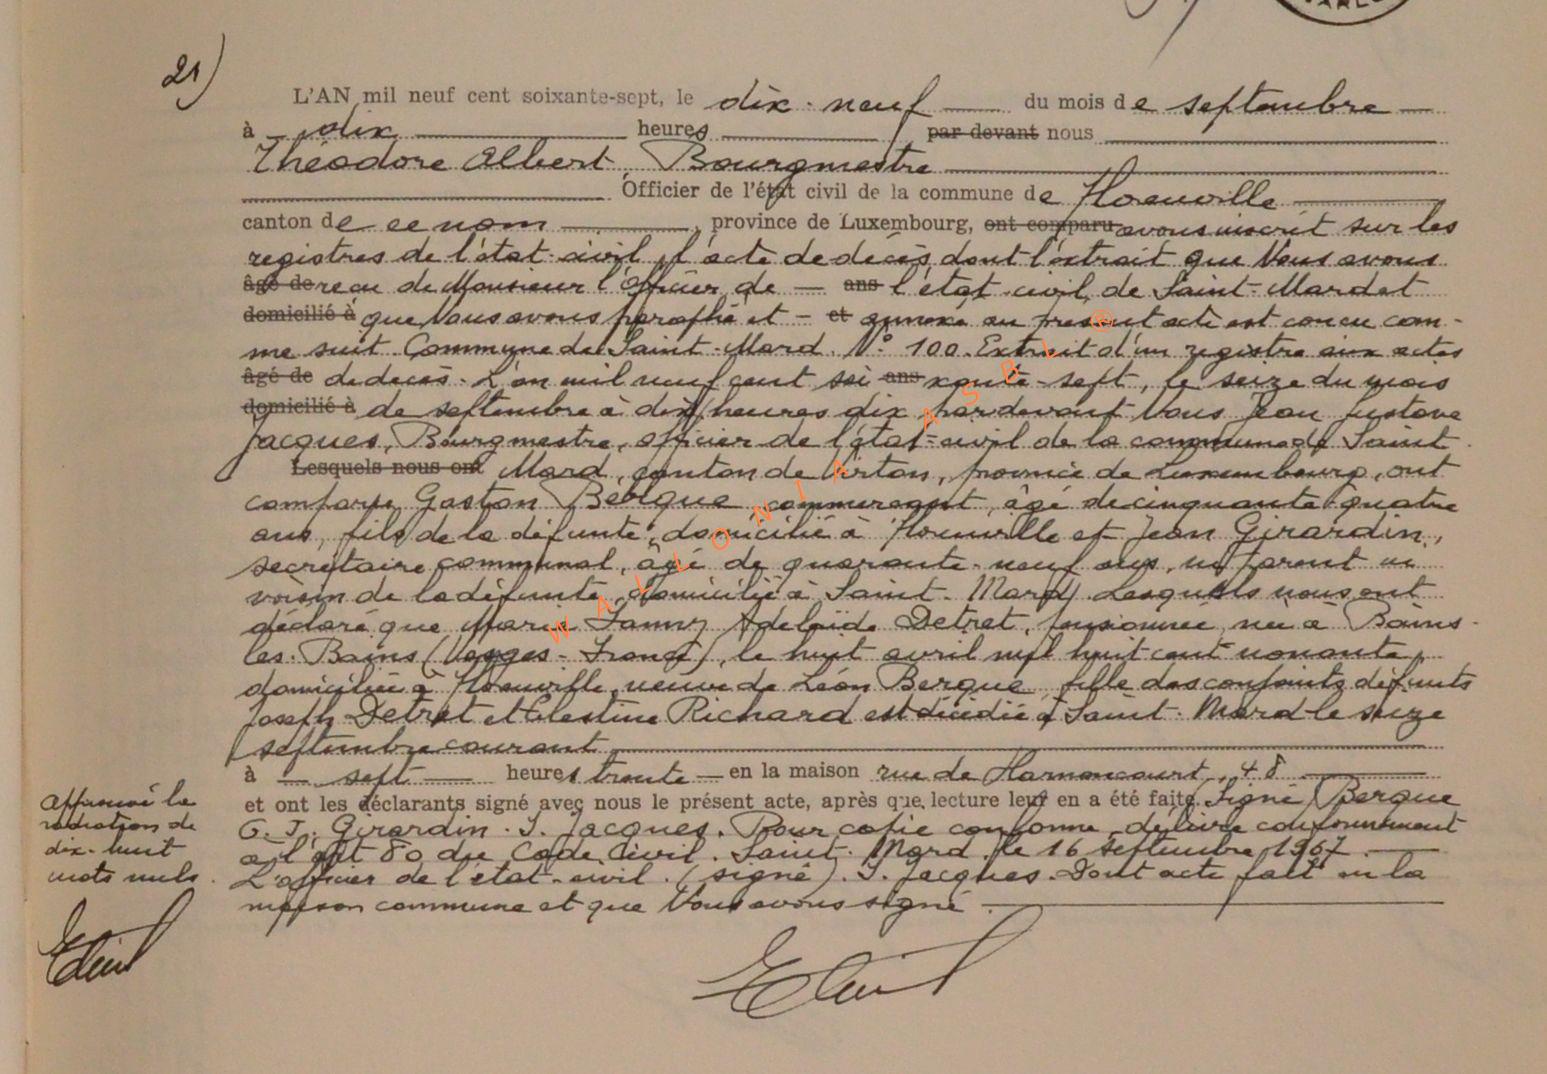 21)
L'AN mil neuf cent soixante-sept, le dix-neuf du mois de septembre
à dix heures par devant nous
Théodore Albert Bourgmestre
Officier de l'état civil de la commune de
canton de ce nom, province de Luxembourg, ont comparu avons inscrit sur les
registres de l'état-civil, l'acte de décès dont l'extrait que Nous avons
âgé de reçu de Monsieur l'Officier de — ans l'état-civil de Saint-Mard et
domicilié à que Nous avons paraphé et — et annexé au présent acte est conçu com-
me suit Commune de Saint-Mard. N° 100. Extrait d'un registre aux actes
âgé de de décès. L'an mil neuf cent soi ans xante-sept, le seize du mois
domicilié à de septembre à dix heures dix par devant Nous Jean Gustave
Jacques, Bourgmestre, officier de l'état-civil de la commune de Saint
Lesquels nous ont Mard, canton de Virton, province de Luxembourg, ont
comparu Gaston Berque commerçant, âgé de cinquante-quatre
ans, fils de la défunte, domicilié à et Jean Girardin,
secrétaire communal, âgé de quarante-neuf ans, ni parent ni
voisin de la défunte, domicilié à Saint-Mard. Lesquels nous ont
déclaré que Marie Fanny Adelaïde Detret, pensionnée, née à Bains-
les-Bains (Vosges-France), le huit avril mil huit cent nonante,
domiciliée à veuve de Léon Berque fille des conjoints défunts
Joseph Detret et Célestine Richard est décédée à Saint-Mard le seize
septembre courant
à sept heures trente en la maison rue de Harnoncourt, 48
et ont les déclarants signé avec nous le présent acte, après que lecture leur en a été faite. (signé) Berque
G. J. Girardin. J. Jacques. Pour copie conforme délivrée conformément
à l'art 80 du Code Civil. Saint-Mard le 16 septembre 1967.
L'officier de l'état-civil. (signé). J. Jacques. Dont acte fait en la
maison commune et que Nous avons signé
Approuvé la
radiation de
dix-huit
mots nuls.
WALLONIA ASBL ®